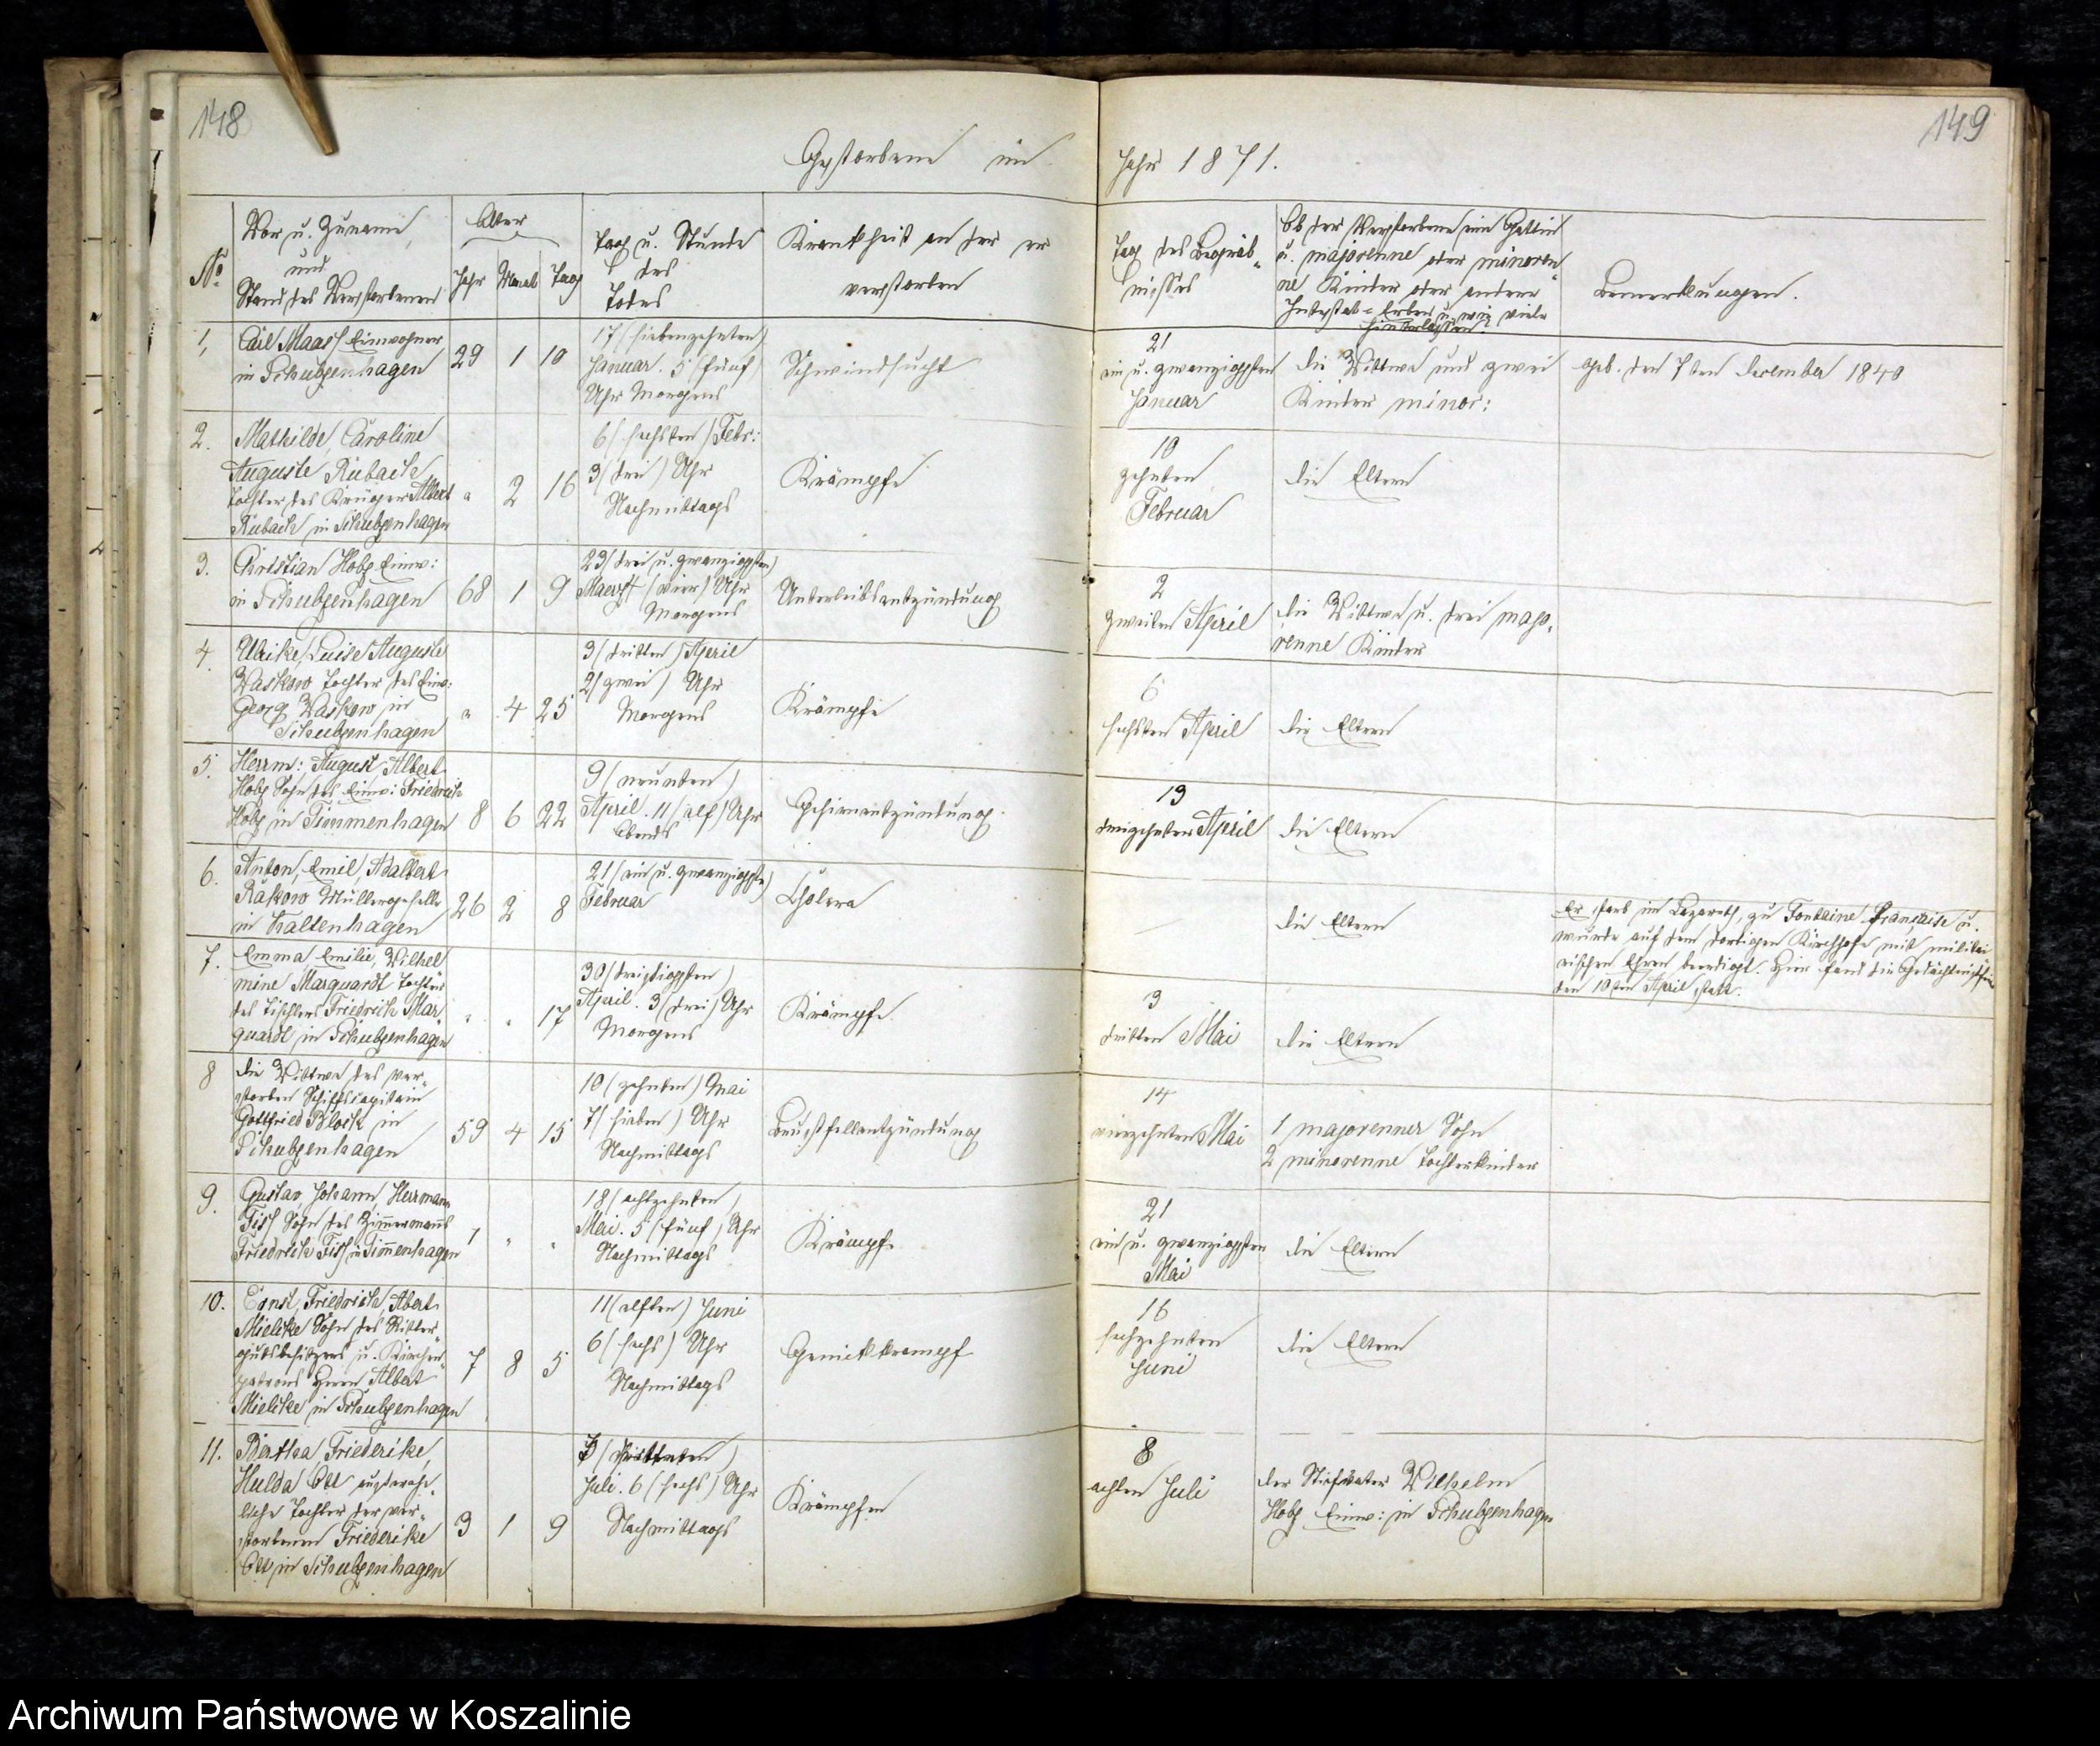 148
149
Gestorbene im Jahr 1871.
No
Vor u. Zuname,
und
Stand des Verstorbenen
Alter
Jahr Monat Tage
Tag u. Stunde
des
Todes
Krankheit an der er
verstorben
Tag des Begräb-
nisses
Ob der Verstorbene ein Gattin
u. majorenne oder minoren-
ne Kinder oder andere
Intestat-Erben u. wie viele
hinterlassen.
Bemerkungen.
1,
Carl Maass Einwohner
in Schulzenhagen
29 1 10
17 (siebenzehnten)
Januar. 5 (fünf)
Uhr Morgens
Schwindsucht
21
ein u. zwanzigsten
Januar
die Wittwe und zwei
Kinder minor:
geb. den 7ten December 1840
2.
Mathilde, Caroline
Auguste Rubach
Tochter des Krüger Albert
Rubach in Schulzenhagen
" 2 16
6 (sechsten) Febr:
3 (drei) Uhr
Nachmittags
Krämpfe
10
zehnten
Februar
die Eltern
3.
Christian Hobz Einw:
in Schulzenhagen
68 1 9
23 (drei u. zwanzigsten)
Maerz 4 (vier) Uhr
Morgens
Unterleibsentzündung
2
zweiten April
die Wittwe u. drei majo-
renne Kinder
4.
Ulrike, Luise Auguste
Waskow Tochter des Einw:
Georg Waskow in
Schulzenhagen
" 4 25
3 (dritten) April
2 (zwei) Uhr
Morgens
Krämpfe
6
sechsten April
die Eltern
5.
Herrm: August Albert
Hobz Sohn des Einw: Friedrich
Hobz in Timmenhagen
8 6 22
9 (neunten)
April. 11 (elf) Uhr
Abends
Gehirnentzündung.
13
dreizehnten April
die Eltern
6.
Anton, Emil, Adalbert
Rakow Müllergeselle
in Kaltenhagen
26 2 8
21 (ein u. zwanzigste)
Februar
Cholera
die Eltern
Er starb im Lazareth, zu Fontaine Française u.
wurde auf dem dortigen Kirchhofe mit militai-
rischen Ehren beerdigt. Hier fand die Gedächtnißfeier
den 10ten April statt.
7.
Emma, Emilie, Wilhel
mine Marquardt Tochter
des Tischlers Friedrich Mar
quardt in Schulzenhagen
" " 17
30 (dreißigsten)
April. 3 (drei) Uhr
Morgens
Krämpfe
3
dritten Mai
die Eltern
8
die Wittwe des ver-
storben Schiffscapitain
Gottfried Block in
Schulzenhagen
59 4 15
10 (zehnten) Mai
7 (sieben) Uhr
Nachmittags
Brustfellentzündung
14
vierzehnten Mai
1 majorenner Sohn
2 minorenne Tochterkinder
9.
Gustav Johann Herrmann
Sohn des Zimmermanns
Friedrich in Timmenhagen
1 " "
18 (achtzehnten)
Mai. 5 (fünf) Uhr
Nachmittags
Krämpfe
21
ein u. zwanzigsten
Mai
die Eltern
10.
Ernst, Friedrich, Albert
Mielcke Sohn des Ritter-
gutsbesitzers u. Kirchen-
patrons Herrn Albert
Mielcke in Schulzenhagen
7 8 5
11 (elften) Juni
6 (sechs) Uhr
Nachmittags
Genickkrampf
16
sechzehnten
Juni
die Eltern
11.
Bertha, Friederike,
Hulda Ott außerehe-
liche Tochter der ver-
storbenen Friederike
Ott in Schulzenhagen
3 1 9
Juli. 6 (sechs) Uhr
Nachmittags
Krämpfen
8
achten Juli
der Stiefvater Wilhelm
Hobz Einw: in Schulzenhagen
Archiwum Państwowe w Koszalinie